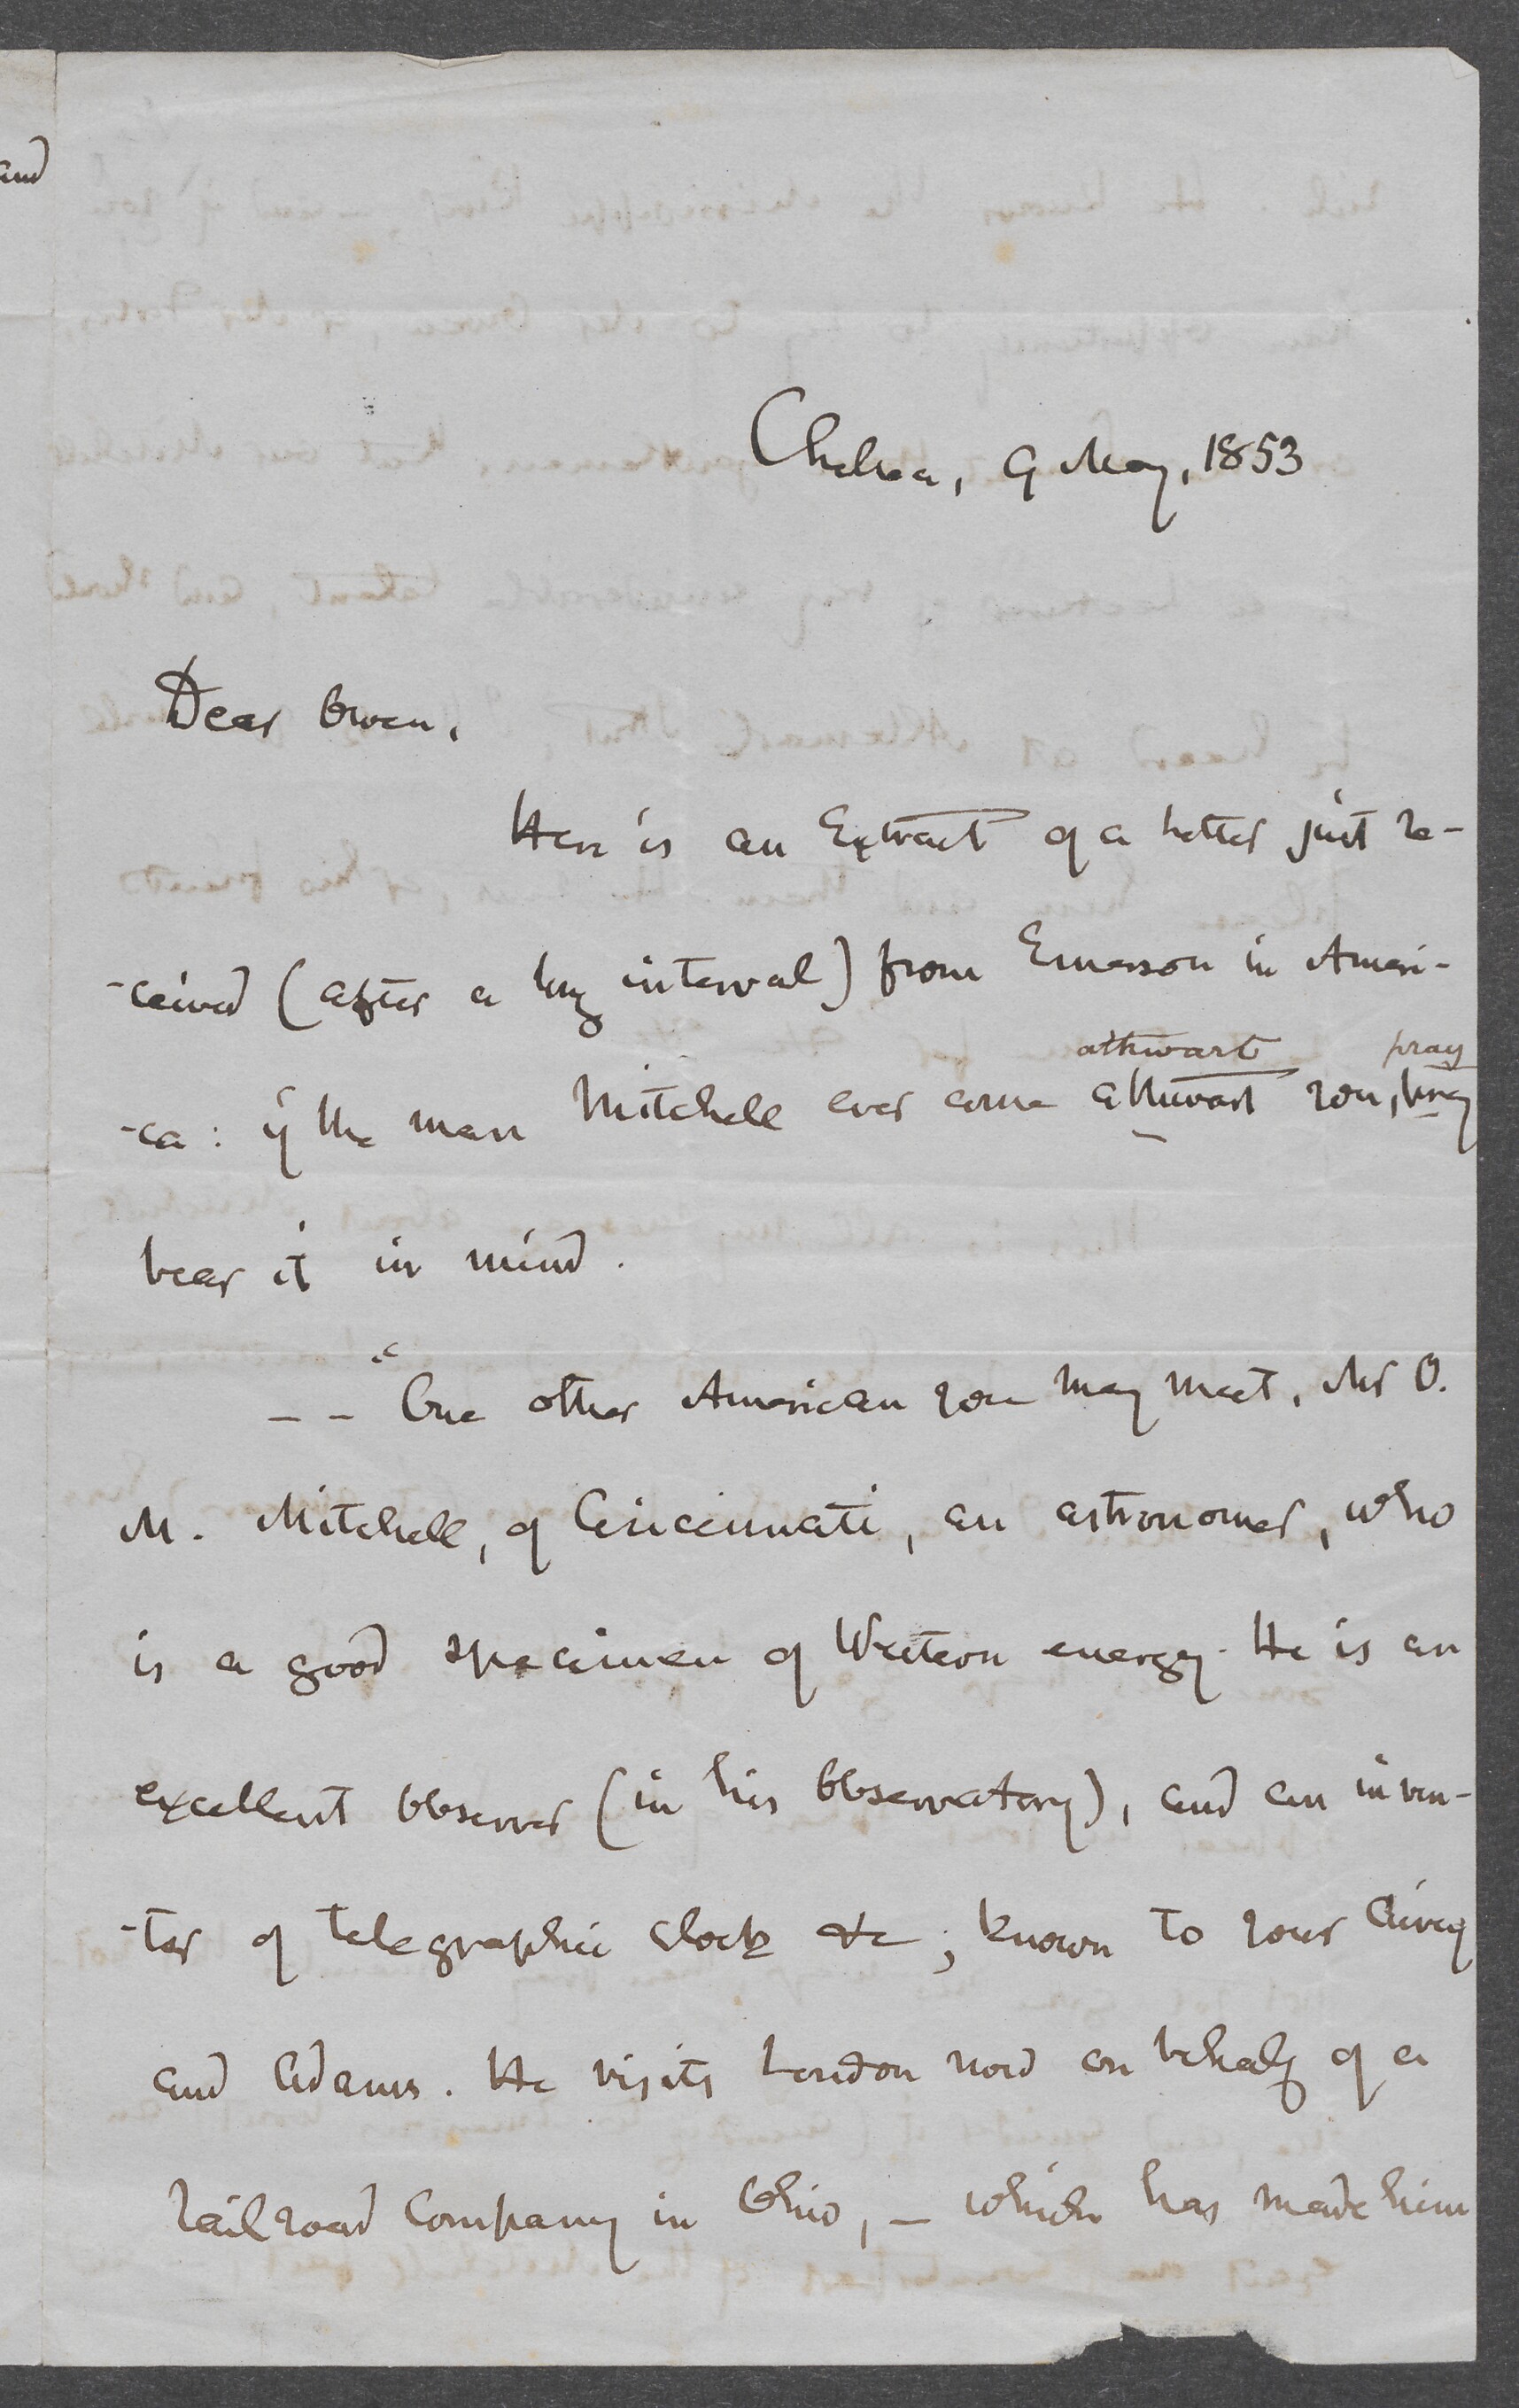 and
Chelsea, 9 May, 1853
Dear Owen,
Here is an Extract of a letter just re-
-ceived (after a long interval) from Emerson in Ameri-
athwart pray
-ca: if the man Mitchell ever come athwart you, pray
bear it in mind.
-- "One other American you may meet, Mr O.
M. Mitchell, of Cincinnati, an astronomer, who
is a good specimen of Western energy. He is an
excellent Observer (in his Observatory), and an inven-
-ter of telegraphic clock &c; known to your Airey
and Adams. He visits London now on behalf of a
railroad Company in Ohio, — which has made him